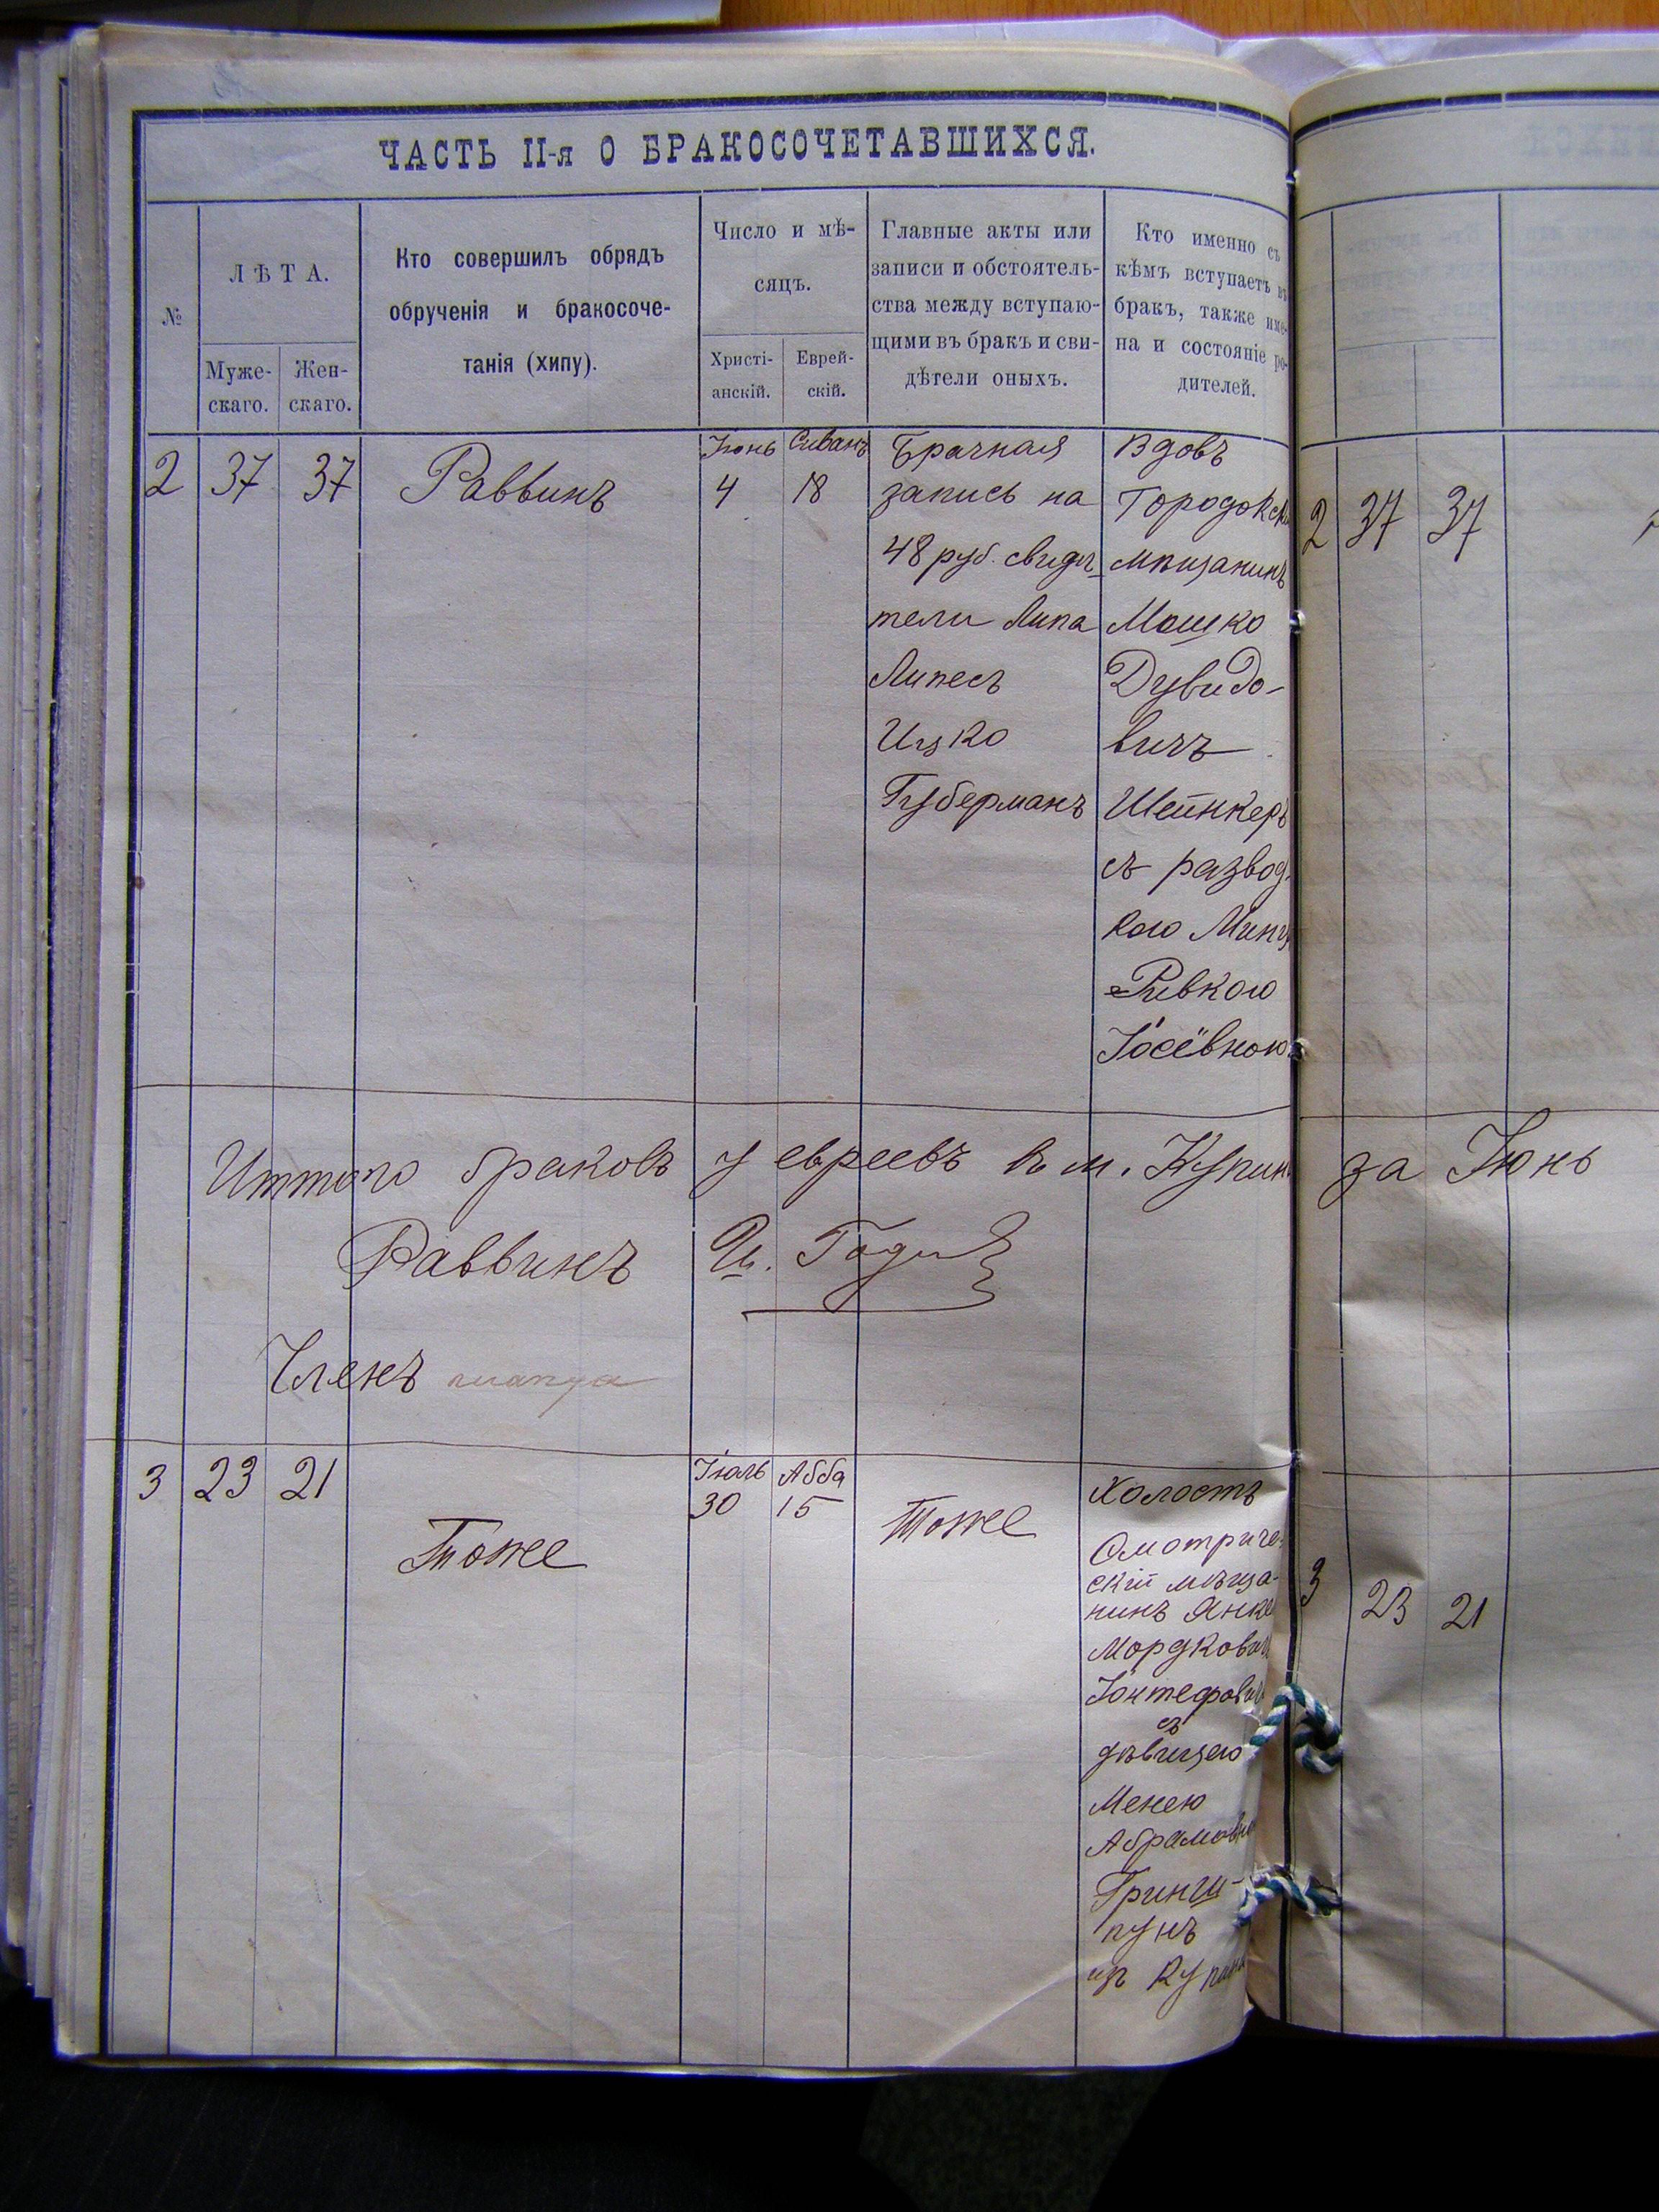 ЧАСТЬ II-я О БРАКОСОЧЕТАВШИХСЯ.
№
ЛѢТА.
Муже-
скаго.
Жен-
скаго.
Кто совершилъ обрядъ
обрученія и бракосоче-
танія (хипу).
Число и мѣ-
сяцъ.
Христі-
анскій.
Еврей-
скій.
Главные акты или
записи и обстоятель-
ства между вступаю-
щими въ бракъ и сви-
дѣтели оныхъ.
Кто именно съ
кѣмъ вступаетъ въ
бракъ, также име-
на и состояніе ро-
дителей.
2
37
37
Раввинъ
Іюнь
4
Сиванъ
18
Брачная
запись на
48 руб. свидѣ-
тели Липа
Липесъ
Ицко
Губерманъ
Вдовъ
Городокскі
мѣщанинъ
Мошко
Дувидо-
вичъ
Шейнкеръ
съ развод-
кою Минц
-Ривкою
Іосёвною
2 37 37
Иттого браковъ у евреевъ в м. Купин за Іюнь
Раввинъ И.
Членъ
3
23
21
Тоже
Іюль
30
Абба
15
Тоже
Холостъ
Смотриче-
скій мѣща-
нинъ Янке
Мордкович
Іонтефович
съ
дѣвицею
Менею
Абрамовно
Гринш-
пунъ
из Купина
3 23 21